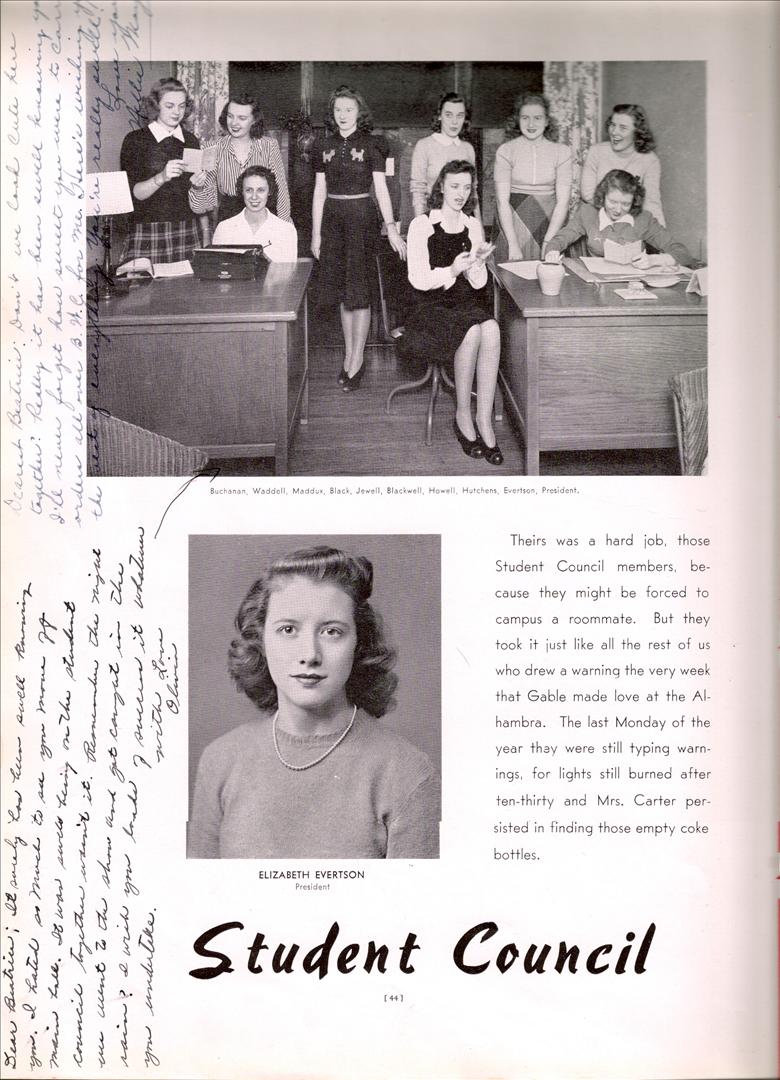 Dearest Beatrice: Don't we look cute here
together? Really it has been swell knowing you
I'll never forget how sweet you were to carry
orders all over B.H.C. for me. Here's wishing you
the best of everything. You're really so swell!!
Love you
Willie May
Buchanan, Waddell, Maddux, Black, Jewell, Blackwell, Howell, Hutchens, Evertson, President.
Dear Beatrice; It surely has been swell knowing
you. I hated so much to see you move off
main hall. It was swell being on the student
council together wasn't it. Remember the night
we went to the show and got caught in the
rain? I wish you loads of success in whatever
you undertake.
with Love
Olivia
ELIZABETH EVERTSON
President
Theirs was a hard job, those
Student Council members, be-
cause they might be forced to
campus a roommate. But they
took it just like all the rest of us
who drew a warning the very week
that Gable made love at the Al-
hambra. The last Monday of the
year they were still typing warn-
ings, for lights still burned after
ten-thirty and Mrs. Carter per-
sisted in finding those empty coke
bottles.
Student Council
[ 44 ]